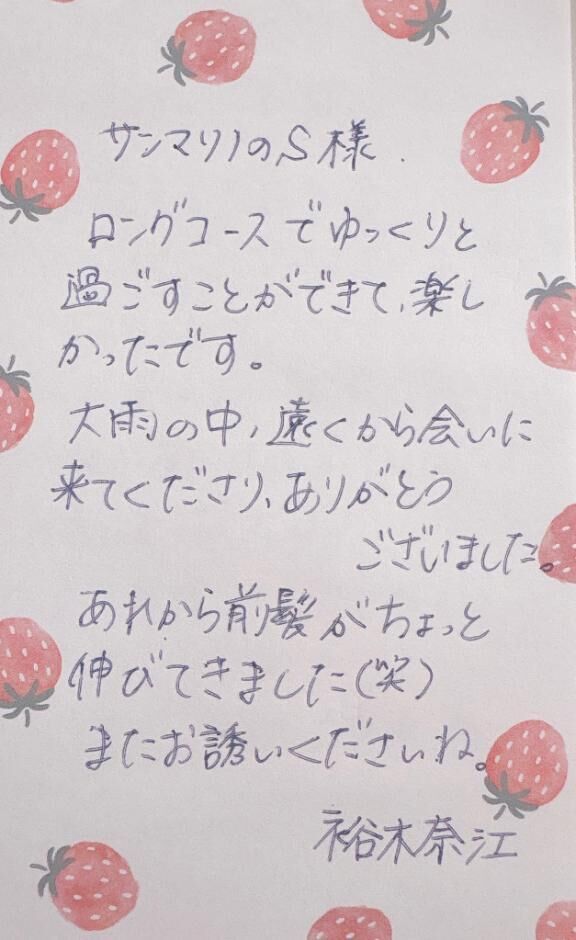 サンマリノのS様
ロングコースでゆっくりと
過ごすことができて、楽し
かったです。
大雨の中、遠くから会いに
来てくださり、ありがとう
ございました。
あれから前髪がちょっと
伸びてきました(笑)
またお誘いくださいね。
裕木奈江